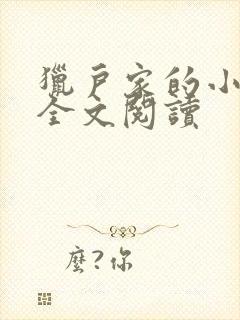 獵戶家的小
全文閱讀
麼?你